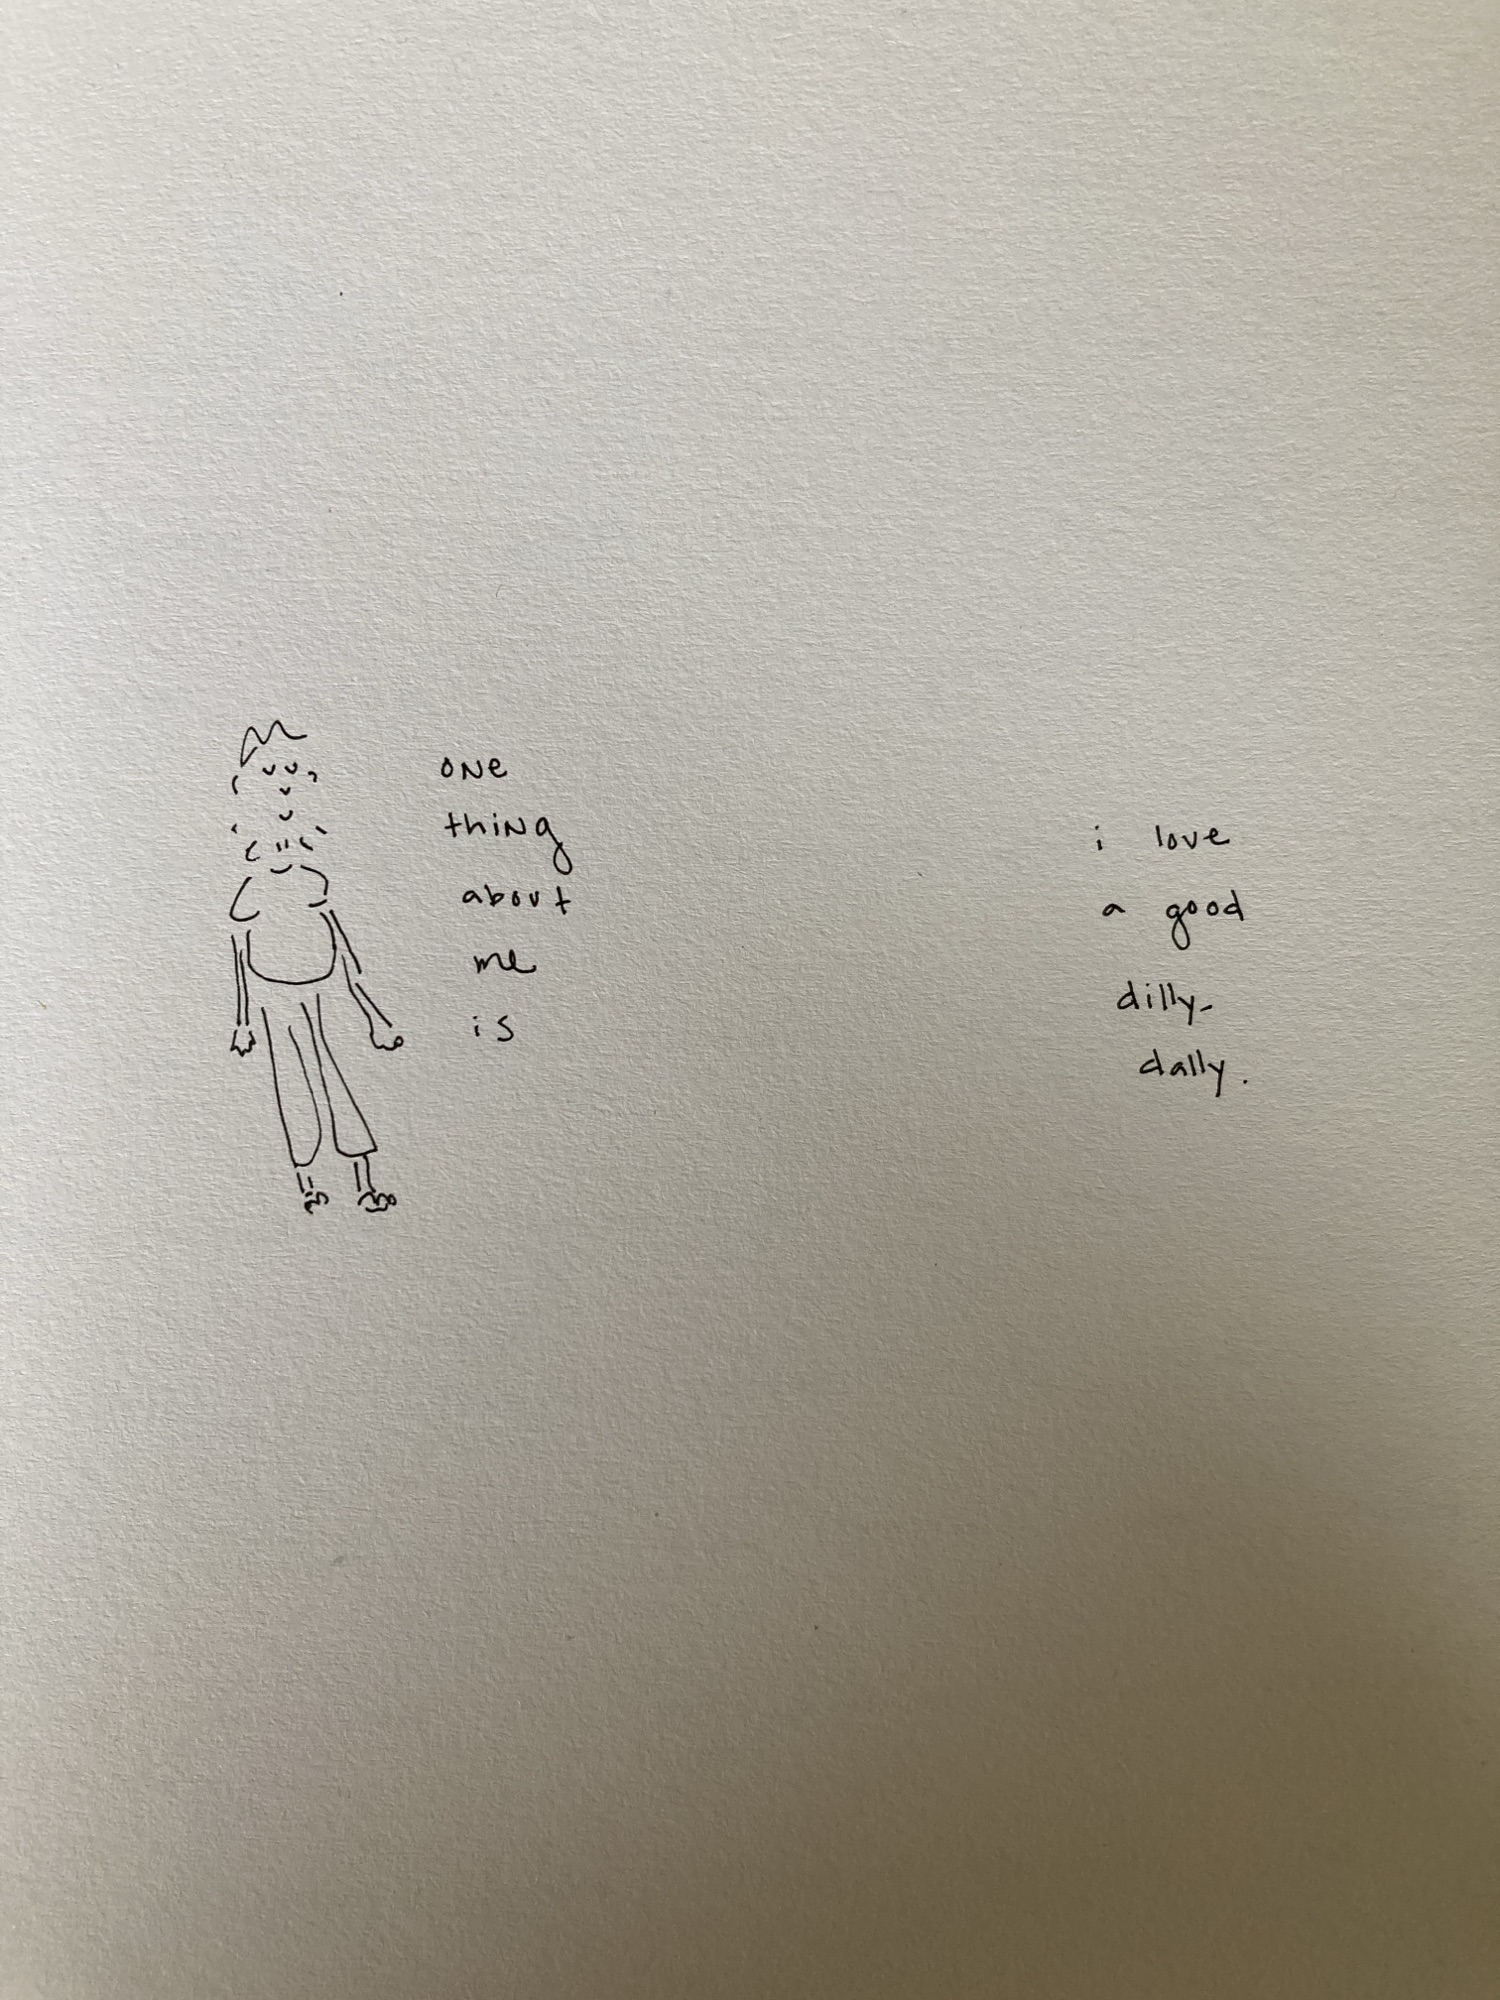 one
thing
about
me
is
i love
a good
dilly-
dally.